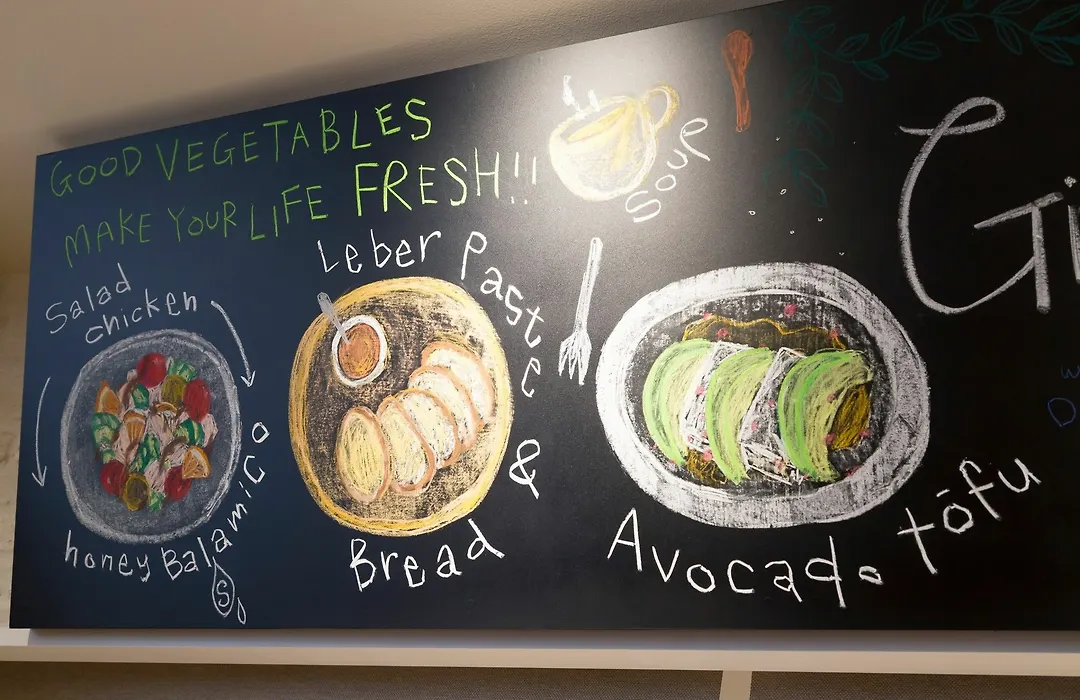 GOOD VEGETABLES
MAKE YOUR LIFE FRESH!!
Soup
Salad
chicken
honey Balamico
s
Leber Paste &
Bread
Avocado tōfu
Gi